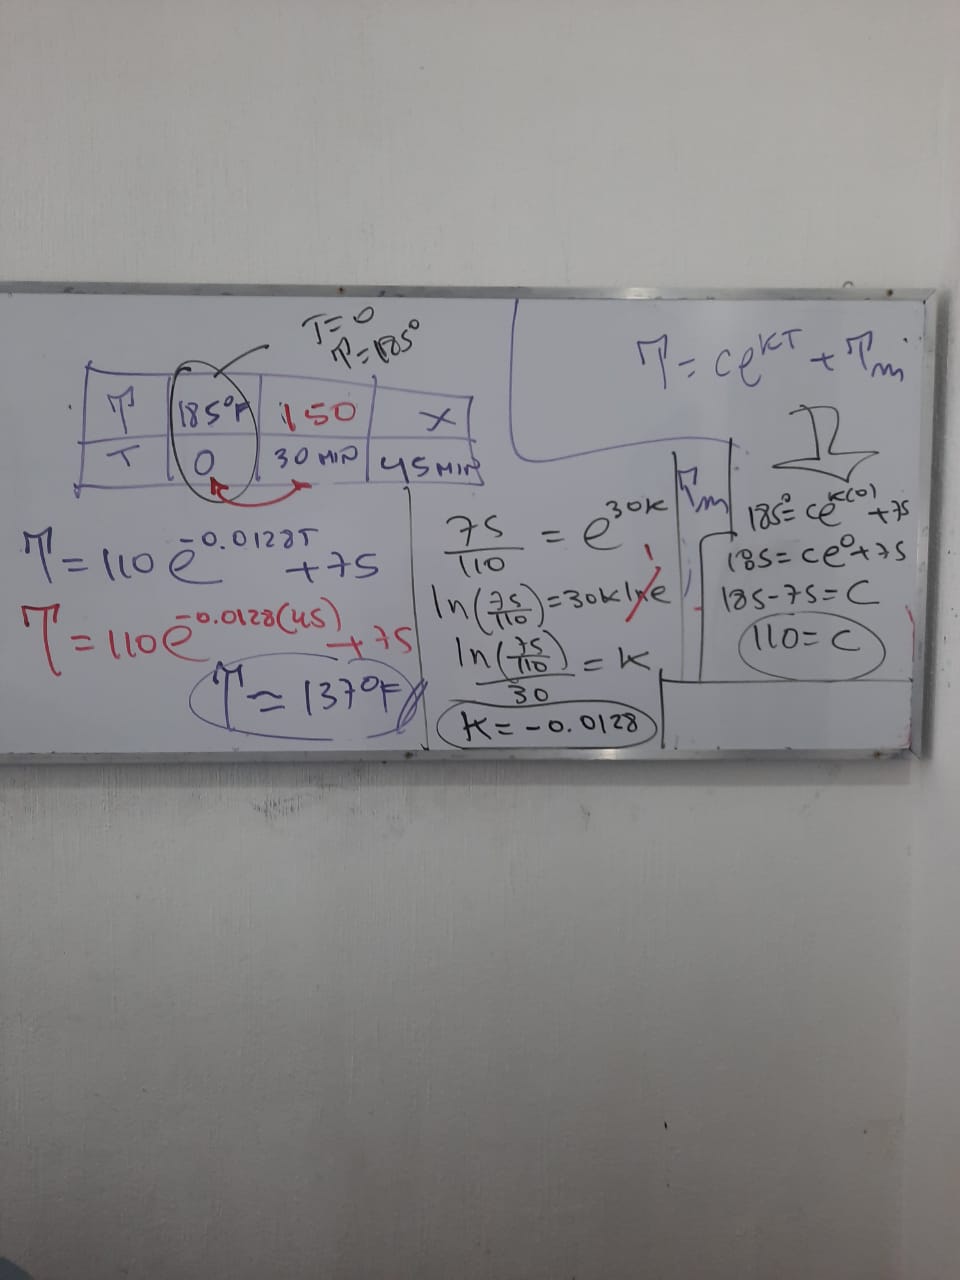 T=0
T=185°
T 185°F 150 X
T 0 30 MIN 45MIN
T=110e^-0.0128T+75
T=110e^-0.0128(45)+75
T≈137°F
75/110 = e^30K
ln(75/110)=30K lne 1
ln(75/110)/30 = K
K=-0.0128
T=ce^KT+Tm
Tm
185°=ce^K(0)+75
185=ce^0+75
185-75=C
110=C